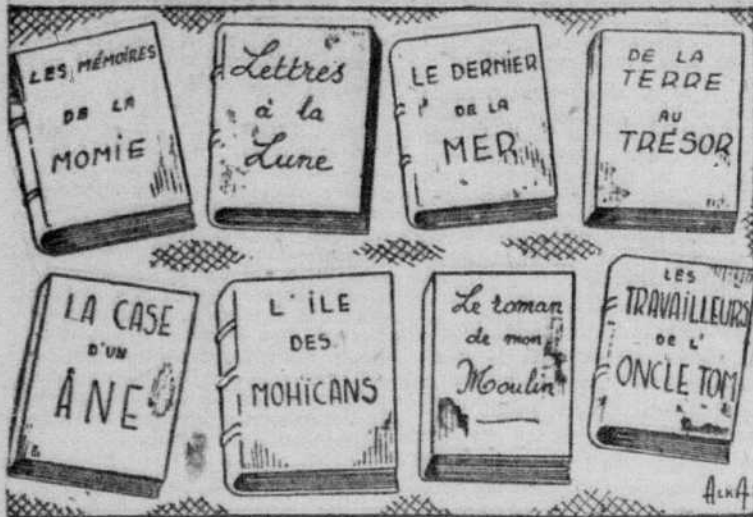 LES MÉMOIRES
DE LA
MOMIE
Lettres
à la
Lune
LE DERNIER
DE LA
MER
DE LA
TERRE
AU
TRÉSOR
LA CASE
D'UN
ÂNE
L'ILE
DES
MOHICANS
Le roman
de mon
Moulin
LES
TRAVAILLEURS
DE L'
ONCLE TOM
ALKA